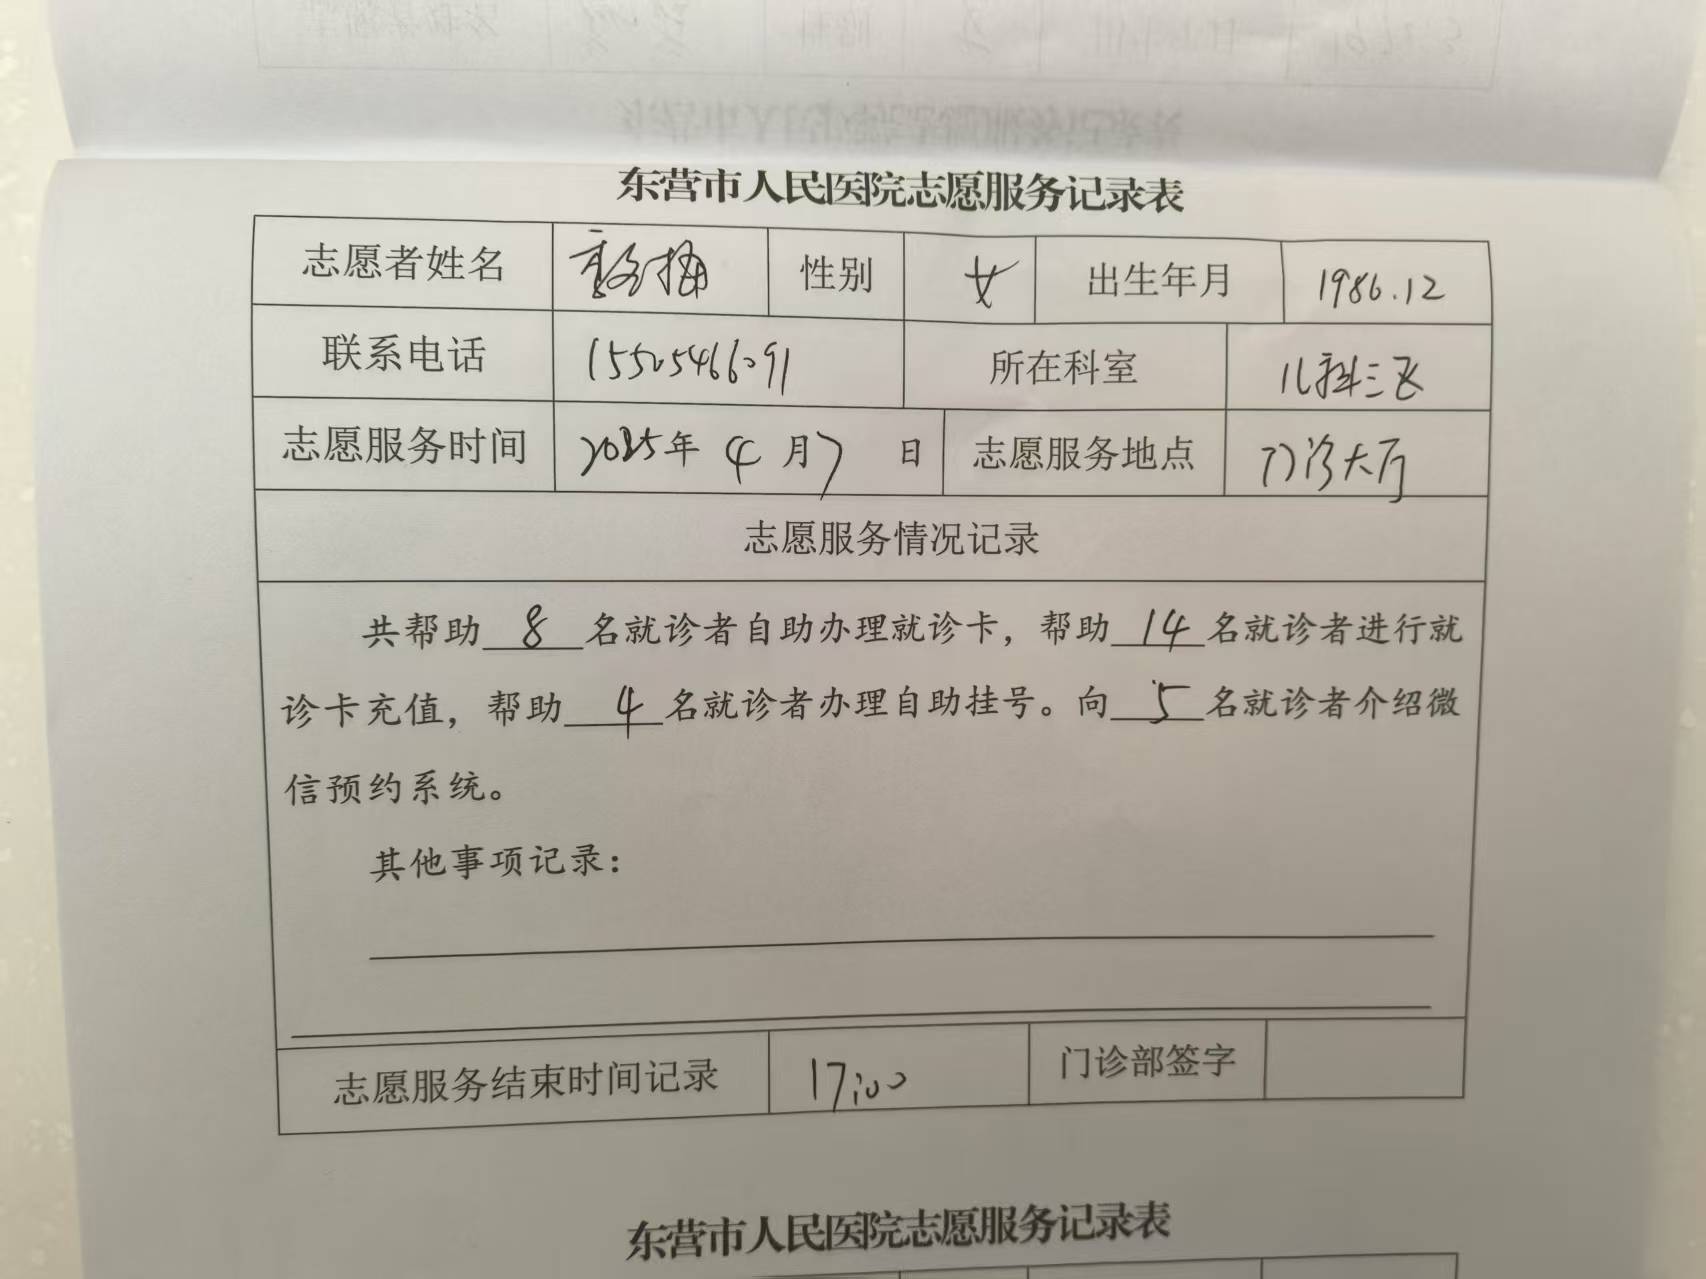 东营市人民医院志愿服务记录表
志愿者姓名 性别 女 出生年月 1986.12
联系电话 15505466091 所在科室 儿科三区
志愿服务时间 2025年 4 月 7 日 志愿服务地点 门诊大厅
志愿服务情况记录
共帮助 8 名就诊者自助办理就诊卡，帮助 14 名就诊者进行就
诊卡充值，帮助 4 名就诊者办理自助挂号。向 5 名就诊者介绍微
信预约系统。
其他事项记录：
志愿服务结束时间记录 17:00 门诊部签字
东营市人民医院志愿服务记录表